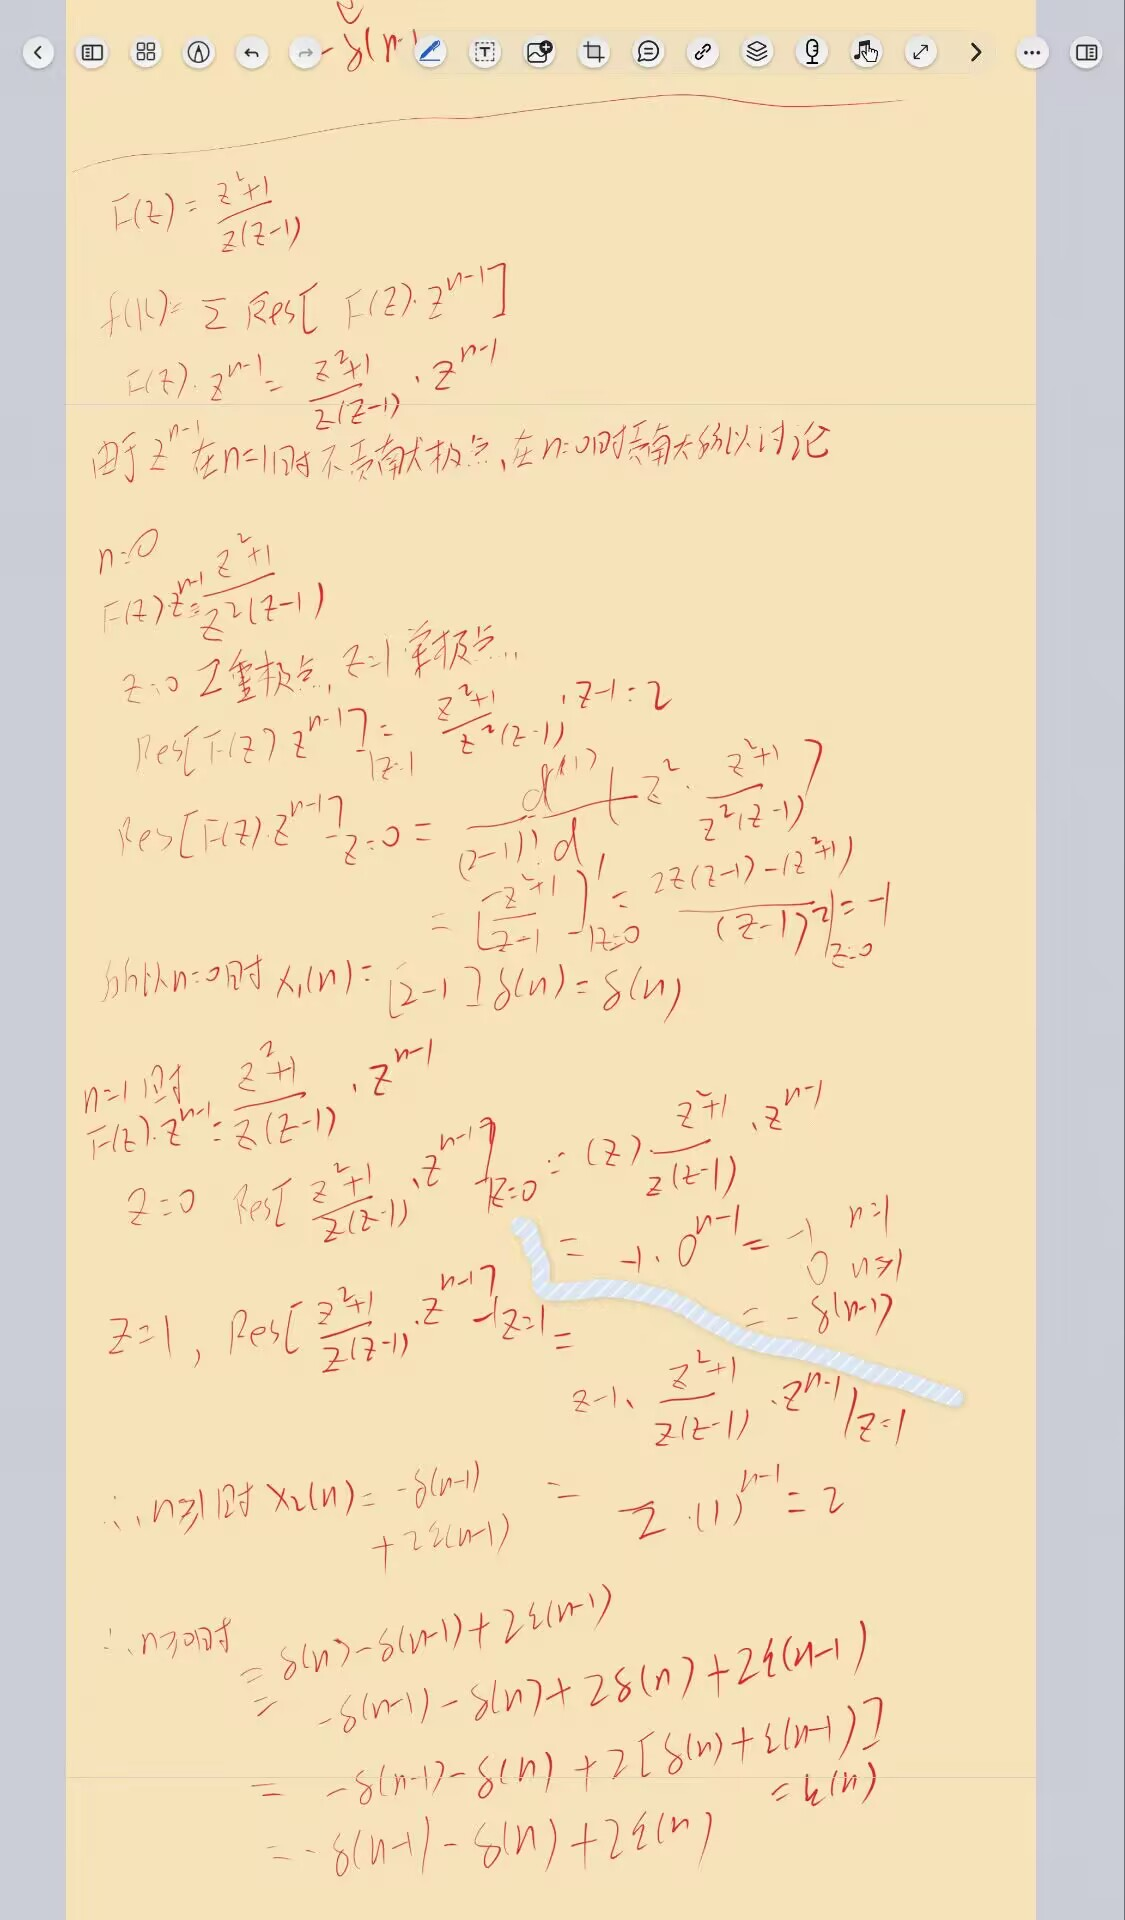 - δ(n-1
F(z) = z²+1 / z(z-1)
f(k) = Σ Res[ F(z)· z^{n-1} ]
F(z)· z^{n-1} = z²+1 / z(z-1) · z^{n-1}
由于 z^{n-1} 在n=1时不贡献极点,在n=0时贡献 所以讨论
n=0
F(z) z^{n-1} = z²+1 / z²(z-1)
z=0 2重极点, z=1 单极点..
Res[F(z) z^{n-1}]|z=1 = z²+1 / z²(z-1) · z-1 = 2
Res[F(z)·z^{n-1}] z=0 = d^{(1)} / (2-1)! d [ z² · z²+1 / z²(z-1) ]
= [ z²+1 / z-1 ]' |z=0 = 2z(z-1)-(z²+1) / (z-1)² |z=0 = -1
所以n=0时 x₁(n) = [2-1]δ(n) = δ(n)
n=1时
F(z)·z^{n-1} = z²+1 / z(z-1) · z^{n-1}
z=0 Res[ z²+1 / z(z-1) · z^{n-1} ]|z=0 = (z)· z²+1 / z(z-1) · z^{n-1}
= -1·0^{n-1} = -1 n=1
0 n>1
= -δ(n-1)
z=1, Res[ z²+1 / z(z-1) · z^{n-1} ]|z=1 =
z-1 · z²+1 / z(z-1) · z^{n-1} |z=1
= 2·(1)^{n-1} = 2
∴ n≥1时 x₂(n) = -δ(n-1)
+ 2ε(n-1)
∴ n≥0时
= δ(n)-δ(n-1)+2ε(n-1)
= -δ(n-1)-δ(n)+2δ(n)+2ε(n-1)
= -δ(n-1)-δ(n)+2[δ(n)+ε(n-1)]
=ε(n)
= -δ(n-1)-δ(n)+2ε(n)